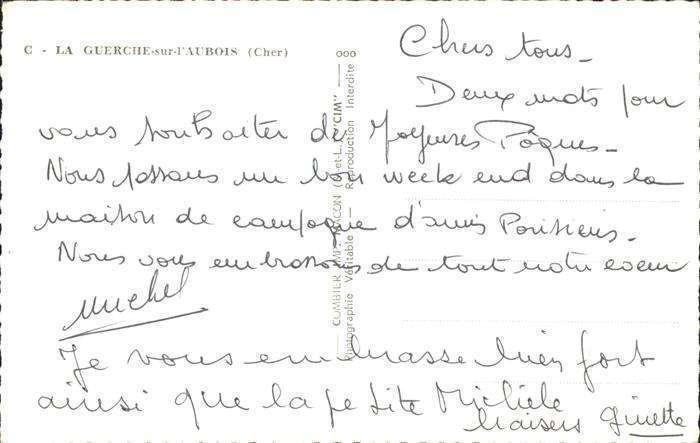 C - LA GUERCHE-sur-l'AUBOIS (Cher)
Chers tous -
Deux mots pour
vous souhaiter de Joyeuses Pâques -
Nous passons un bon week end dans la
maison de campagne d'amis Parisiens -
Nous vous embrassons de tout notre coeur
Michel
Je vous embrasse bien fort
ainsi que la petite Michèle
baisers Ginette
COMBIER IMP. MACON (S.-et-L.) "CIM"
Photographie Véritable - Reproduction Interdite